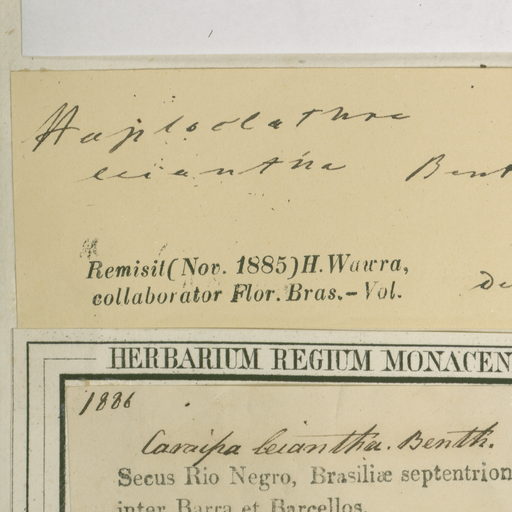 Haploclathra
leiantha Bent
Remisit (Nov. 1885) H. Wawra,
collaborator Flor. Bras.-Vol.
de
HERBARIUM REGIUM MONACEN
1886
Caraipa leiantha. Benth.
Secus Rio Negro, Brasiliæ septentrion
inter Barra et Barcellos.